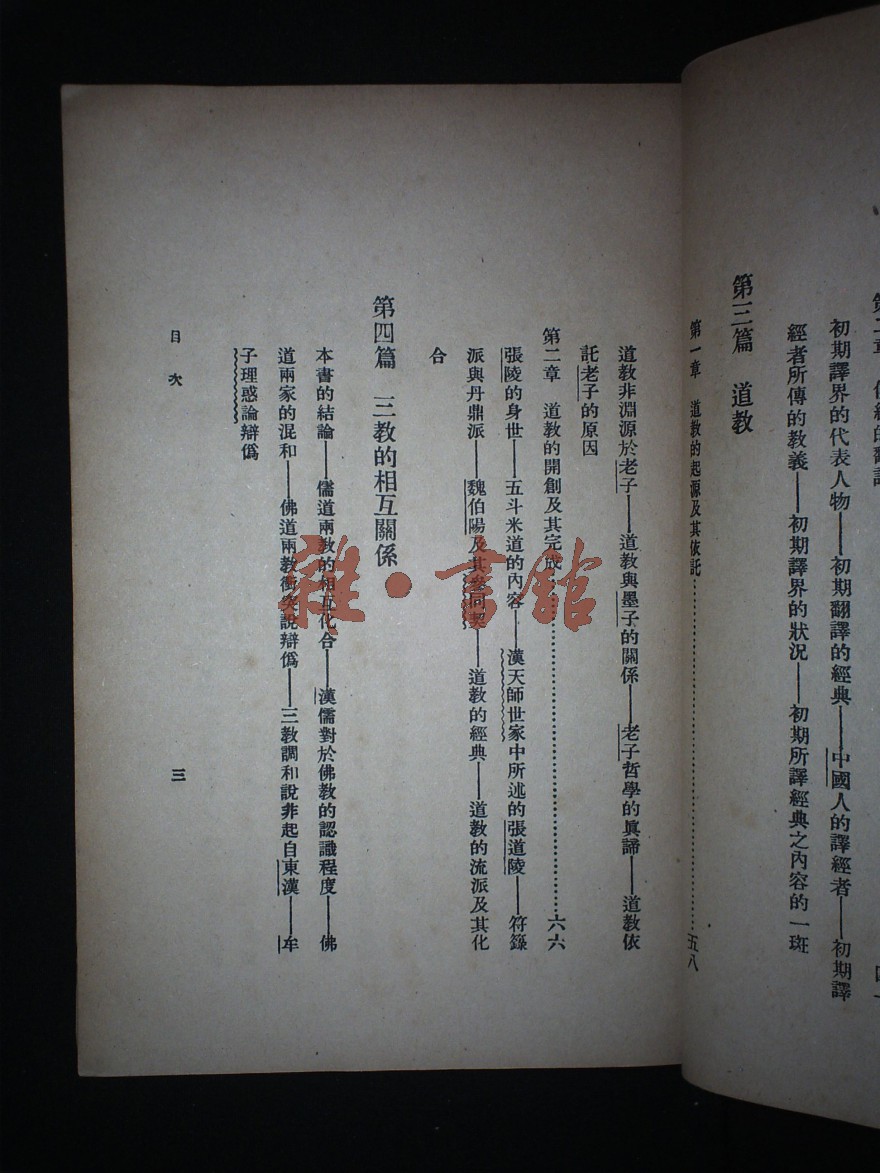 初期譯界的代表人物——初期翻譯的經典——中國人的譯經者——初期譯
經者所傳的教義——初期譯界的狀況——初期所譯經典之內容的一斑
第三篇 道教
第一章 道教的起源及其依託……五八
道教非淵源於老子——道教與墨子的關係——老子哲學的眞諦——道教依
託老子的原因
第二章 道教的開創及其完成……六六
張陵的身世——五斗米道的內容——漢天師世家中所述的張道陵——符籙
派與丹鼎派——魏伯陽及其參同契——道教的經典——道教的流派及其化
合
第四篇 三教的相互關係
本書的結論——儒道兩教的相互化合——漢儒對於佛教的認識程度——佛
道兩家的混和——佛道兩教衝突說辯僞——三教調和說非起自東漢——牟
子理惑論辯僞
目次
三
雜·書館